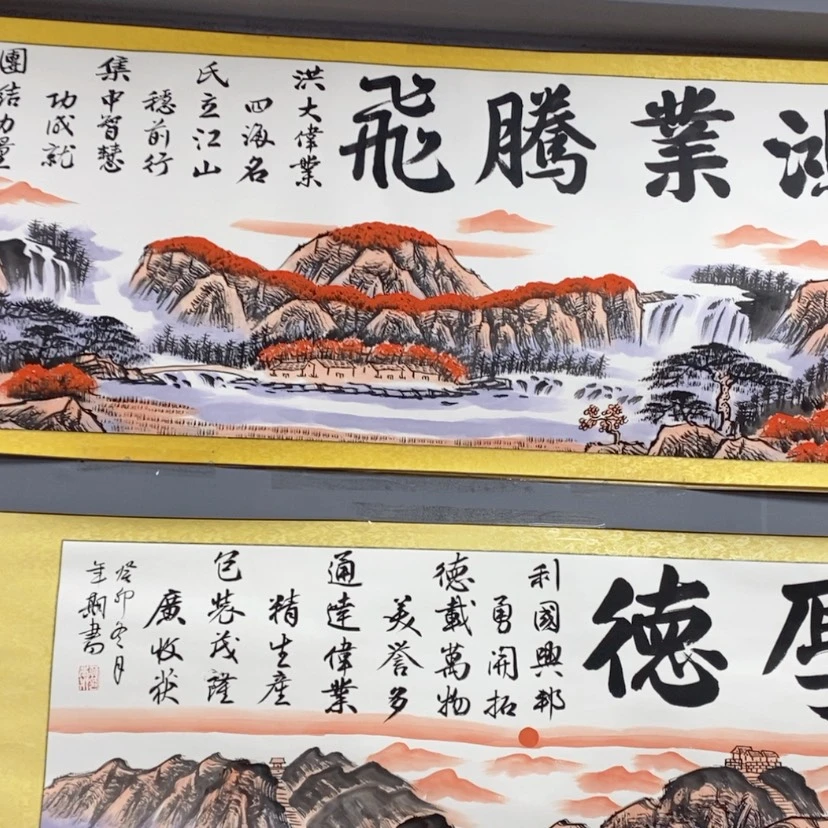 業騰飛
洪大偉業
四海名
氏立江山
穩前行
集中智慧
功成就
團結力量
德
利國興邦
勇開拓
德載萬物
美譽多
通達偉業
精生產
包裝茂隆
廣收获
癸卯冬月
書